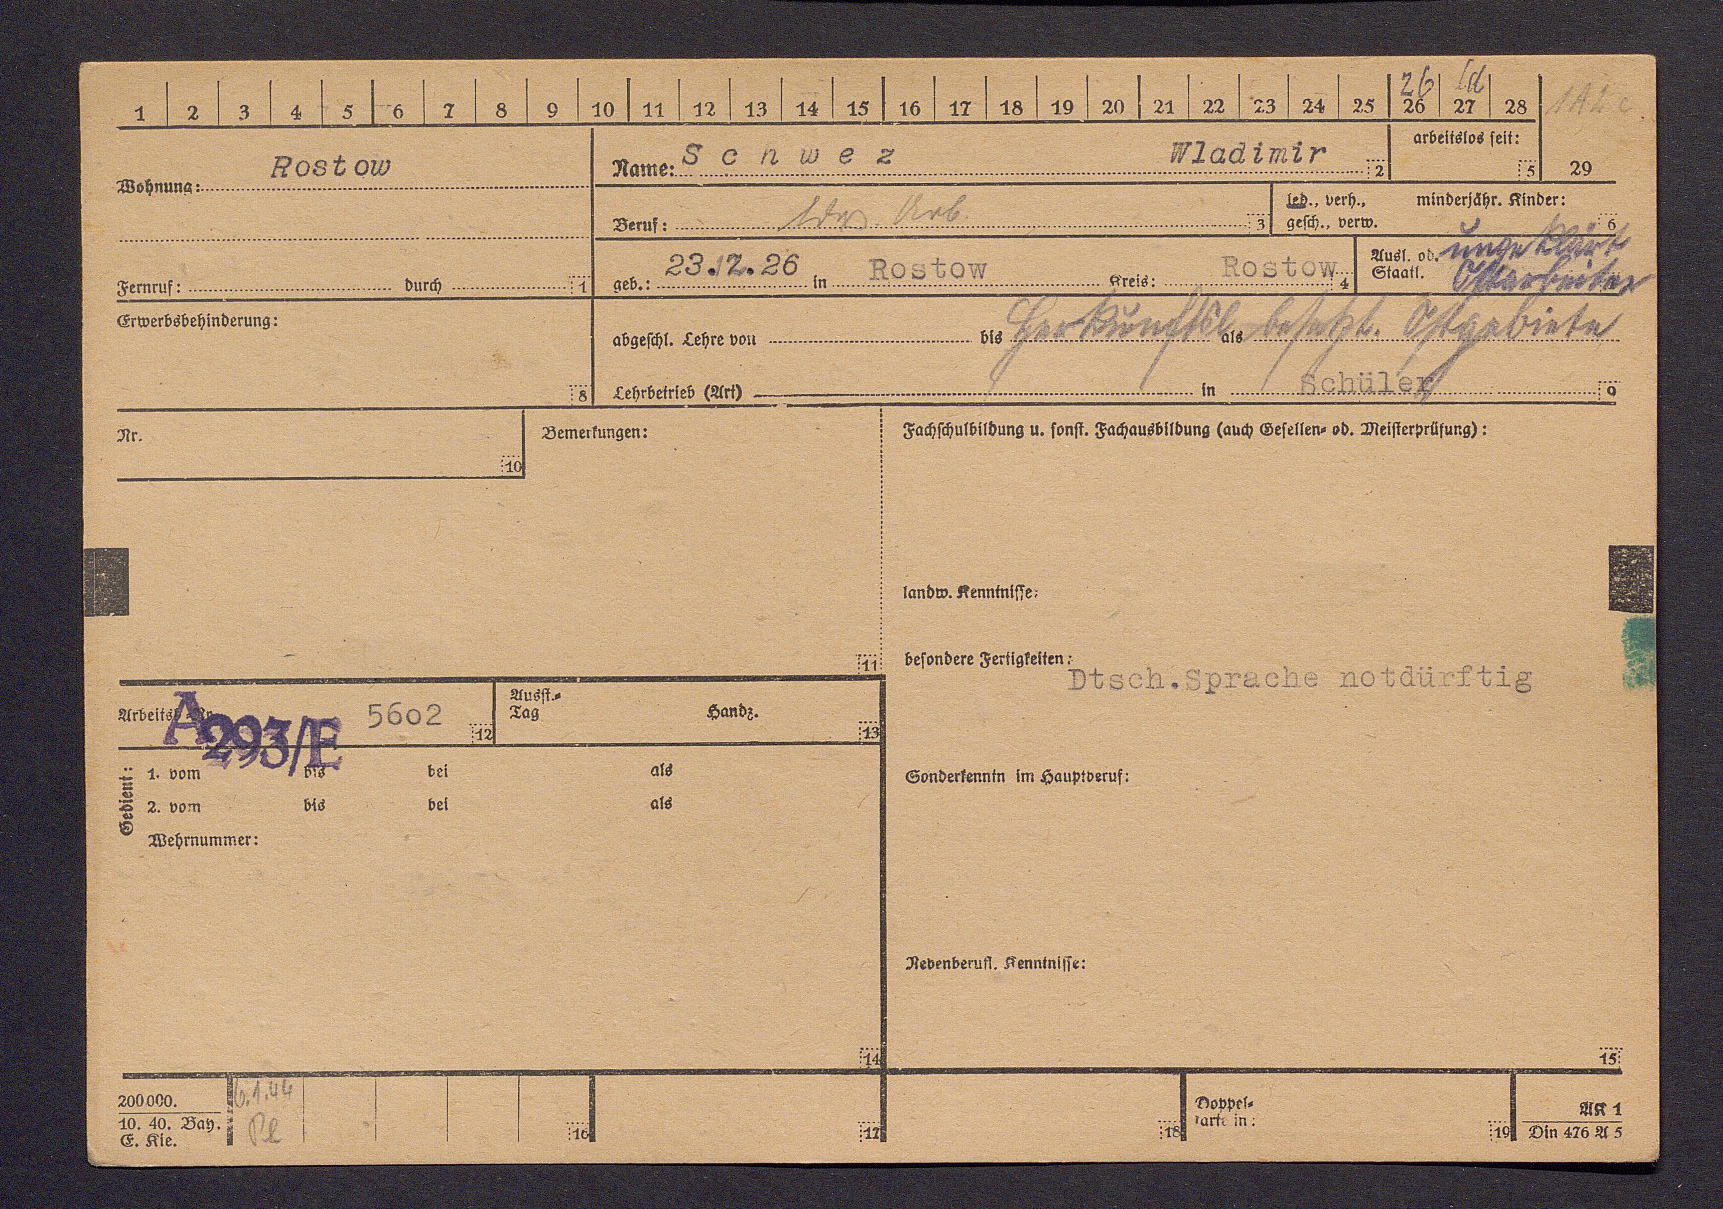 1 2 3 4 5 6 7 8 9 10 11 12 13 14 15 16 17 18 19 20 21 22 23 24 25 26 27 28
26
29
Wohnung: Rostow
Name: S c h w e z Wladimir 2
arbeitslos seit: 5
Beruf: Arb. 3
led., verh., gesch., verw.
minderjähr. Kinder: 6
Fernruf: durch 1
geb.: 23.12.26 in Rostow Kreis: Rostow 4
Ausl. od. Staatl. ungeklärt
Ostarbeiter
Erwerbsbehinderung: 8
abgeschl. Lehre von bis als
Herkunftsl besetzt. Ostgebiete
Lehrbetrieb (Art) in Schüler 9
Nr. 10
Bemerkungen: 11
Fachschulbildung u. sonst. Fachausbildung (auch Gesellen- od. Meisterprüfung):
landw. Kenntnisse:
besondere Fertigkeiten:
Dtsch.Sprache notdürftig
Arbeitsb.-Nr. 5602 12
A
293/E
Ausst.-Tag Handz. 13
Gedient:
1. vom bis bei als
2. vom bis bei als
Wehrnummer:
14
Sonderkenntn im Hauptberuf:
Nebenberufl. Kenntnisse:
15
200000.
10. 40. Bay.
E. Kie.
6.1.44
16
17
18
Doppel-
karte in: 19
AK 1
Din 476 A 5